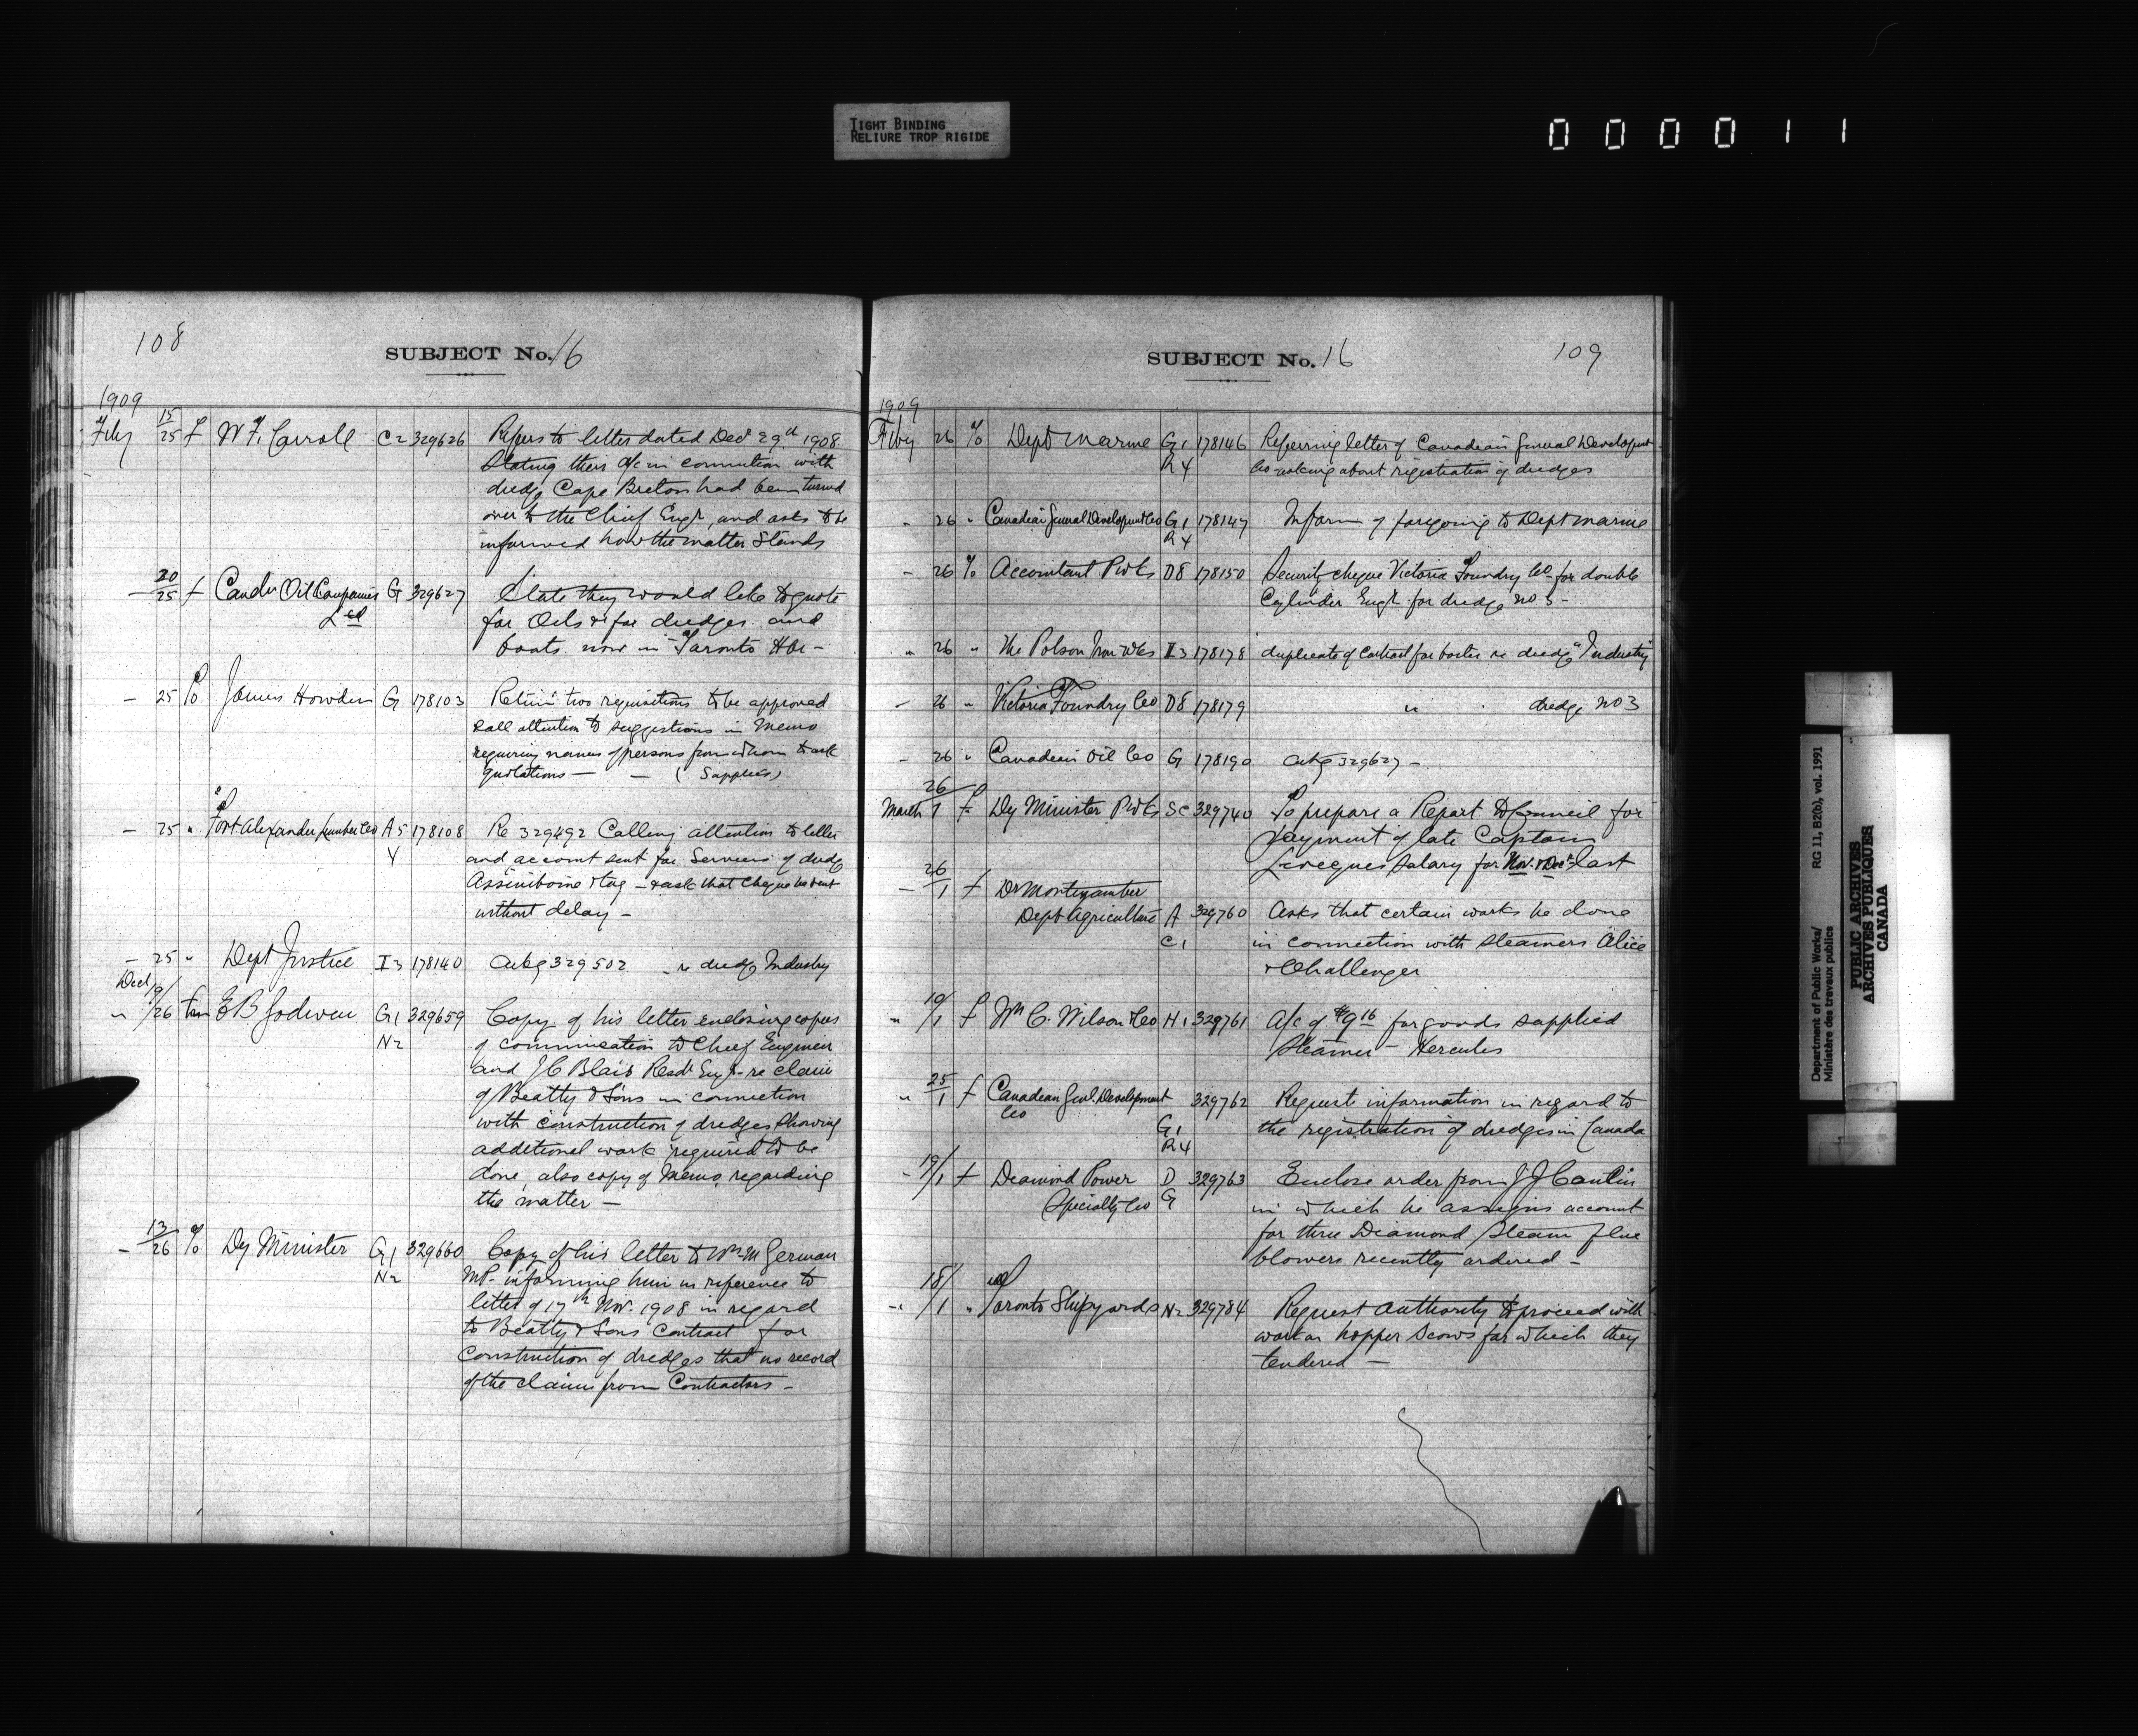 TIGHT BINDING
RELIURE TROP RIGIDE
000011
108
SUBJECT No. 16
1909
Feby 15/25 f W. F. Carroll C2 329626 Refers to letter dated Decr 29th 1908
stating their a/c in connection with
dredge Cape Breton had been turned
over to the Chief Engr, and asks to be
informed how the matter stands
— 20/25 f Canadn Oil Companies G 329627 State they would like to quote
Ltd for Oils &c for dredges and
boats now in Toronto Hbr —
— 25 To James Howden G 178103 Return two requisitions to be approved
call attention to suggestions in Memo
requiring names of persons from whom to ask
quotations — — (Supplies)
— 25 " Port Alexander Lumber Co A5 178108 Re 329492 Calling attention to letter
Y and account sent for Services of dredge
Assiniboine & tug — & ask that cheque be sent
without delay —
— 25 " Dept Justice I3 178140 Ackg 329502 — re dredge Industry
Decr
" 19/26 E B Godwin G1 329659 Copy of his letter enclosing copies
N2 of communication to Chief Engineer
and J C Blair Resdt Engr - re claim
of Beatty & Sons in connection
with construction of dredges showing
additional work required to be
done, also copy of Memo, regarding
the matter —
— 13/26 % Dy Minister G1 329660 Copy of his letter to Wm M German
N2 MP - informing him in reference to
letter of 17th Nov. 1908 in regard
to Beatty & Sons Contract for
Construction of dredges that no record
of the claims from Contractors —
SUBJECT No. 16
109
1909
Feby 26 % Dept Marine G1 178146 Referring letter of Canadian General Development
R4 Co asking about registration of dredges
" 26 " Canadian General Development Co G1 178147 Inform of foregoing to Dept Marine
R4
— 26 % Accountant PWks D8 178150 Security cheque Victoria Foundry Co for double
Cylinder Engr for dredge No 3 —
" 26 " The Polson Iron Wks I3 178178 duplicate of Contract for boiler re dredge "Industry"
— 26 " Victoria Foundry Co D8 178179 " " dredge No 3
— 26 " Canadian Oil Co G 178190 Ackg 329627 —
March 26/1 f Dy Minister PWks SC 329740 To prepare a Report to Council for
payment of late Captain
salary for Nov. & Decr last
— 26/1 f Dr Montizambert
Dept Agriculture A 329760 Asks that certain works be done
C1 in connection with steamers Alice
& Challenger
" 19/1 f Wm C. Wilson & Co H1 329761 A/c of $9.16 for goods supplied
Steamer — Hercules
" 25/1 f Canadian Genl. Development 329762 Request information in regard to
Co G1 the registration of dredges in Canada
R4
— 19/1 f Diamond Power D 329763 Enclose order from J J Cantin
Specialty Co G in which he assigns account
for three Diamond Steam flue
blowers recently ordered —
— 18/1 " Toronto Shipyards N2 329784 Request Authority to proceed with
work on hopper scows for which they
tendered —
Department of Public Works/ RG 11, B2(b), vol. 1991
Ministère des travaux publics
PUBLIC ARCHIVES
ARCHIVES PUBLIQUES
CANADA